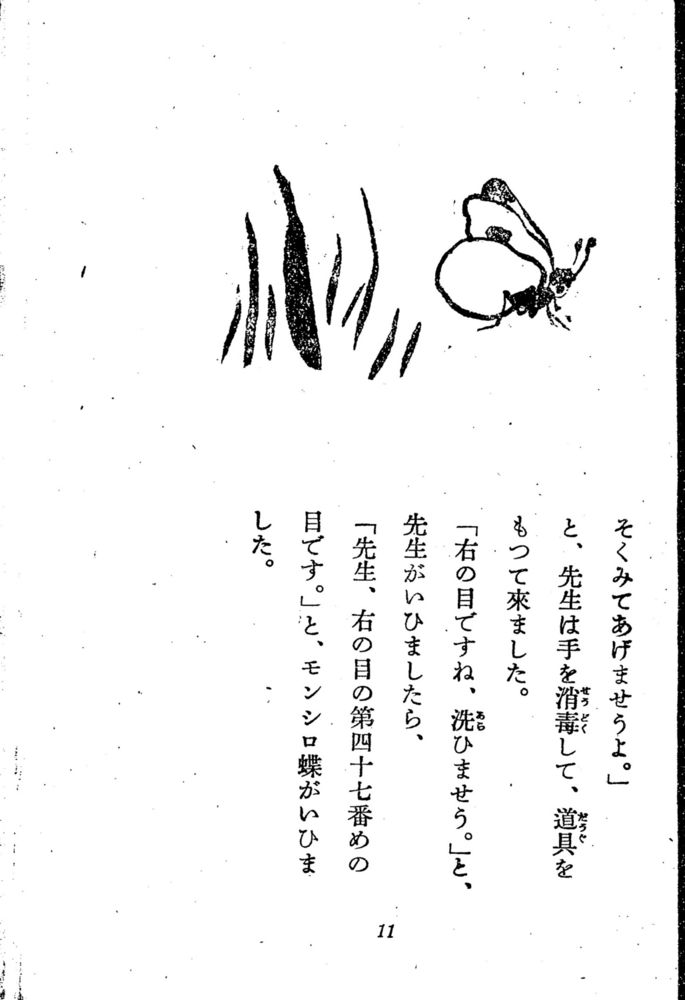 そくみてあげませうよ。」
と、先生は手を消毒して、道具を
もつて來ました。
「右の目ですね、洗ひませう。」と、
先生がいひましたら、
「先生、右の目の第四十七番めの
目です。」と、モンシロ蝶がいひま
した。
11